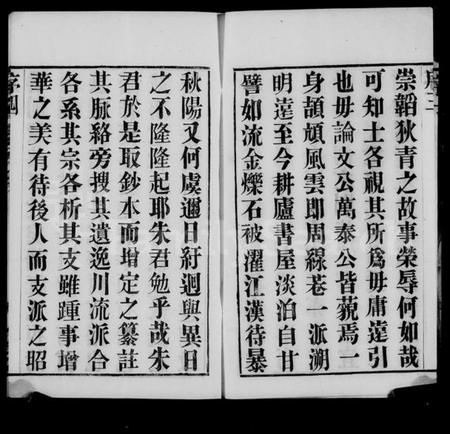 崇韜狄青之故事榮辱何如哉
可知士各視其所為毋庸遠引
也毋論文公萬泰公皆藐焉一
身頡頏風雲即周線巷一派溯
明遠至今耕廬書屋淡泊自甘
譬如流金爍石被濯江漢待暴
秋陽又何虞邇日紆迴與異日
之不隆隆起耶朱君勉乎哉朱
君於是取鈔本而增定之纂註
其脉絡旁搜其遺逸川流派合
各系其宗各析其支雖踵事增
華之美有待後人而支派之昭
序四